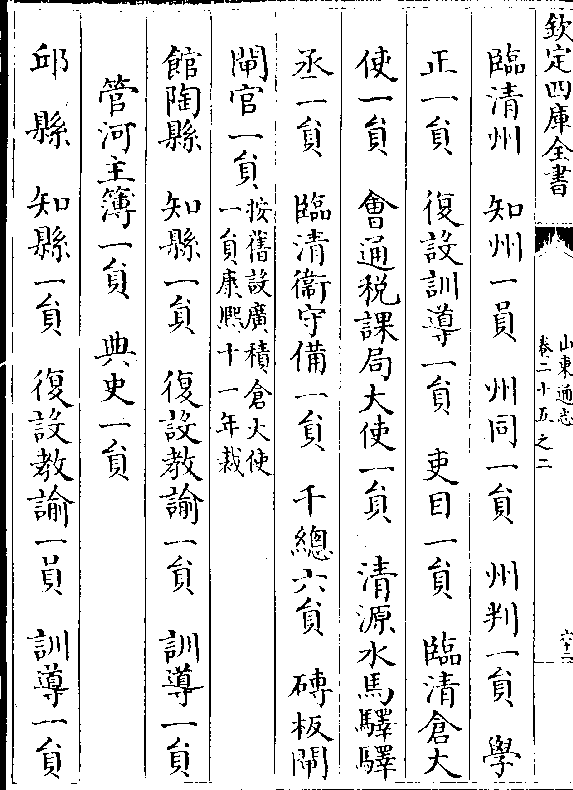 欽定四庫全書
山東通志
卷二十五之二
六十二
臨清州　知州一員　州同一員　州判一員　學
正一員　復設訓導一員　吏目一員　臨清倉大
使一員　會通税課局大使一員　清源水馬驛驛
丞一員　臨清衞守備一員　千總六員　磚板閘
閘官一員按舊設廣積倉大使
一員康熙十一年裁
館陶縣　知縣一員　復設教諭一員　訓導一員
管河主簿一員　典史一員
邱縣　知縣一員　復設教諭一員　訓導一員